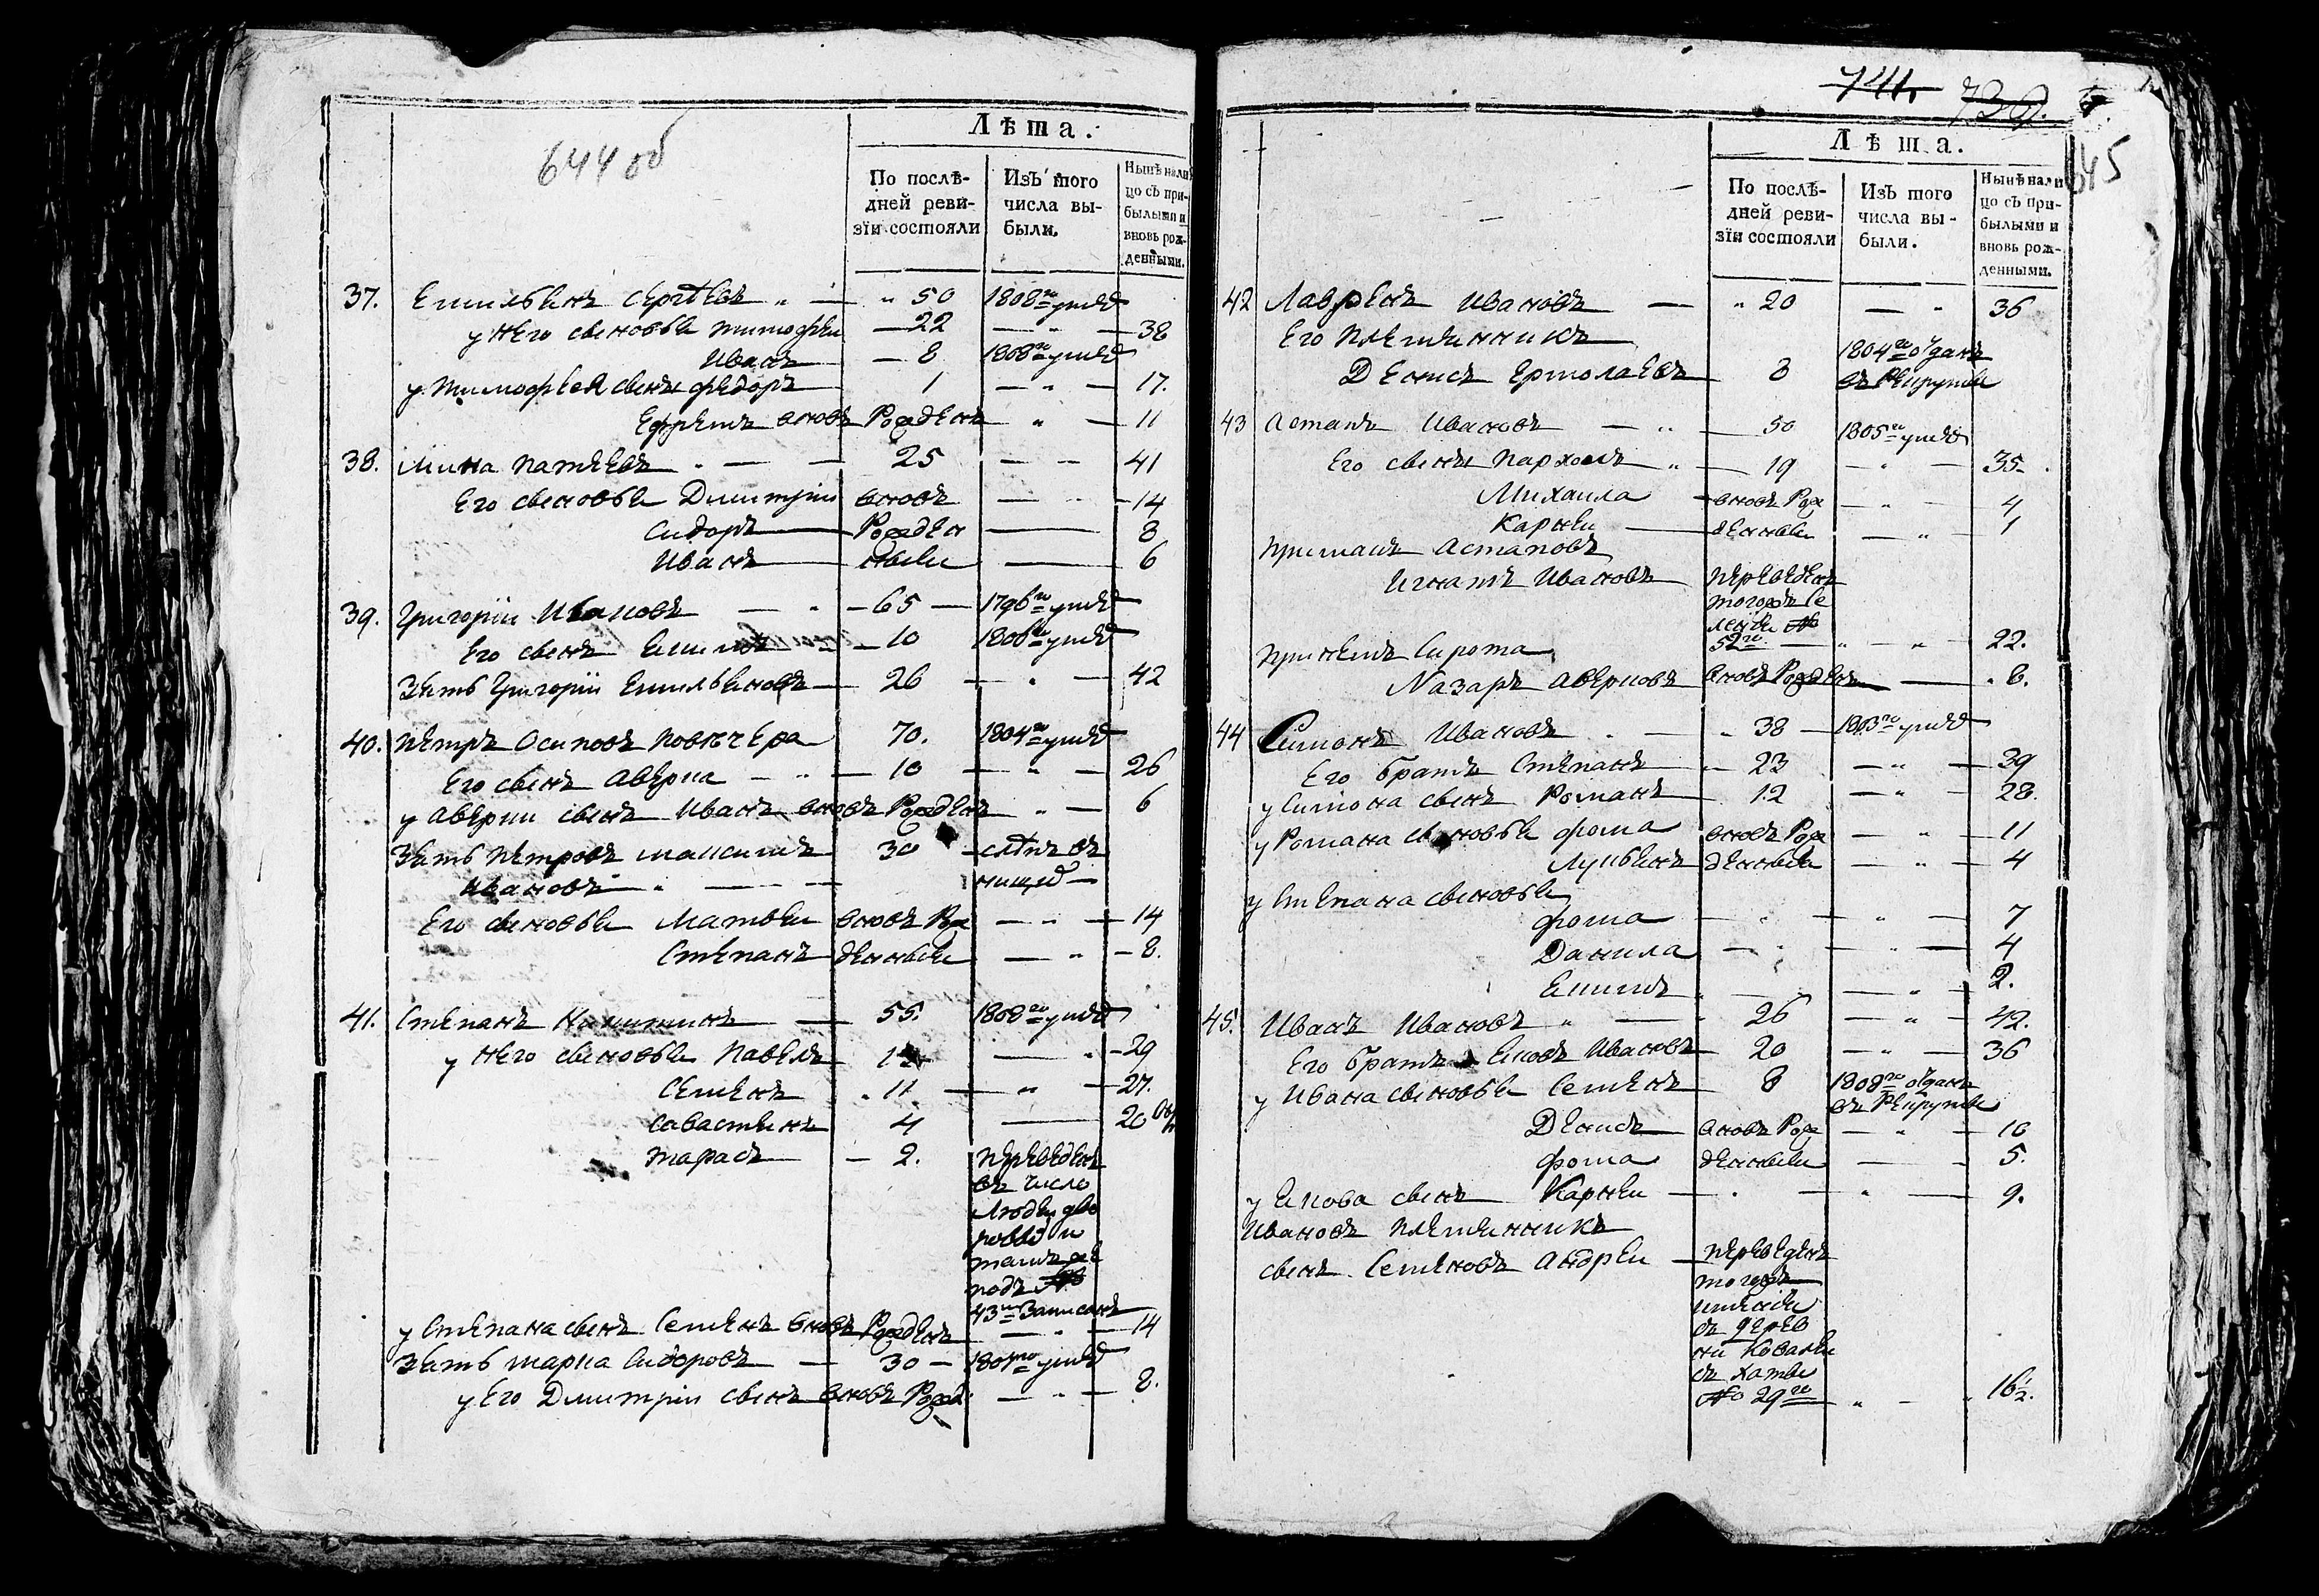 644 об
Лѣта.
По послѣ-
дней реви-
зіи состояли
Изъ того
числа вы-
были.
Нынѣ нали
цо съ при-
былыми и
вновь рож-
денными.
37. Емильянъ Сергѣевъ " — " 50 1808го умре
у него сыновьи Тимофеи — 22 — " — 38
Иванъ — 8 1808го умре
у Тимофея сынъ Федоръ 1 — " — 17.
Ефремъ вновь рожденъ " — 11
38. Мина Патѣевъ " — 25 — — 41
Его сыновьи Дмитріи вновь — — 14
Сидоръ рожден — 8
Иванъ ныи — 6
39. Григоріи Ивановъ — " — 65 — 1796го умре
Его сынъ — 10 1806го умре
Зять Григоріи Емильяновъ — 26 — " — 42
40. Петръ Осиповъ 70. 1804го умре
Его сынъ Аверка — " — 10 — " — 26
у Аверки сынъ Иванъ вновь рожденъ " — 6
Зять Петровъ Максимъ 30 слѣпъ въ
Ивановъ " — — нищ
Его сыновьи Матвеи вновь рож — " — 14
Степанъ денныи — " — 8.
41. Степанъ Никитинъ — 55. 1808го умре
у него сыновьи Павелъ — " — 29
Семенъ " 11 — " — 27.
Савастьянъ 4 — 20
Тарасъ — 2. переведенъ
въ число
людеи дво
ровы и
тамъ же
подъ №
43м записанъ
у Степана сынъ Семенъ вновь рожденъ — " — 14
Зять Марка Сидоровъ — 30 — умре
у Его Дмитріи сынъ вновь рожд — " — 8.
741.
739.
645
Лѣта.
По послѣ-
дней реви-
зіи состояли
Изъ того
числа вы-
были.
Нынѣ нали
цо съ при-
былыми и
вновь рож-
денными.
42 Лавренъ Ивановъ — " 20 — " 36
Его племянникъ
Денисъ Ермолаевъ — 8 1804го отданъ
въ рекруты
43 Астапъ Ивановъ — " — 50 1805го умре
Его сынъ Пархомъ " — 19 — " — 35.
Михаила — вновь рож — " — 4
Карнеи — денныи — " — 1
примакъ Астаповъ
Игнатъ Ивановъ переведенъ
тогожъ се
ленія №
52го — " — " — 22.
принятъ сирота
Назаръ Аверковъ вновь рожденъ — " 6.
44 Симонъ Ивановъ " — " 38 — 1803го умре
Его братъ Степанъ " — 23 — " — 39
у Симона сынъ Романъ — 12 — " — 28.
у Романа сыновьи Фома вновь рож — " — 11
Лукьянъ денныи — " — 4
у Степана сыновьи
Фома — " — " — 7
Данила — " — " — 4
— " — 2.
45. Иванъ Ивановъ " — 26 — " — 42.
Его братъ Яковъ Ивановъ — 20 — " — 36
у Ивана сыновьи Семенъ — 8 1808го отданъ
въ рекруты
Денисъ вновь рож — " — 10
Фома денныи — 5.
у Якова сынъ Карнеи — " — " — 9.
Ивановъ племянникъ
сынъ Семеновъ Андреи — переведенъ
тогожъ
имѣнія
съ дерев
ни
съ хаты
№ 29го " — " 16½.